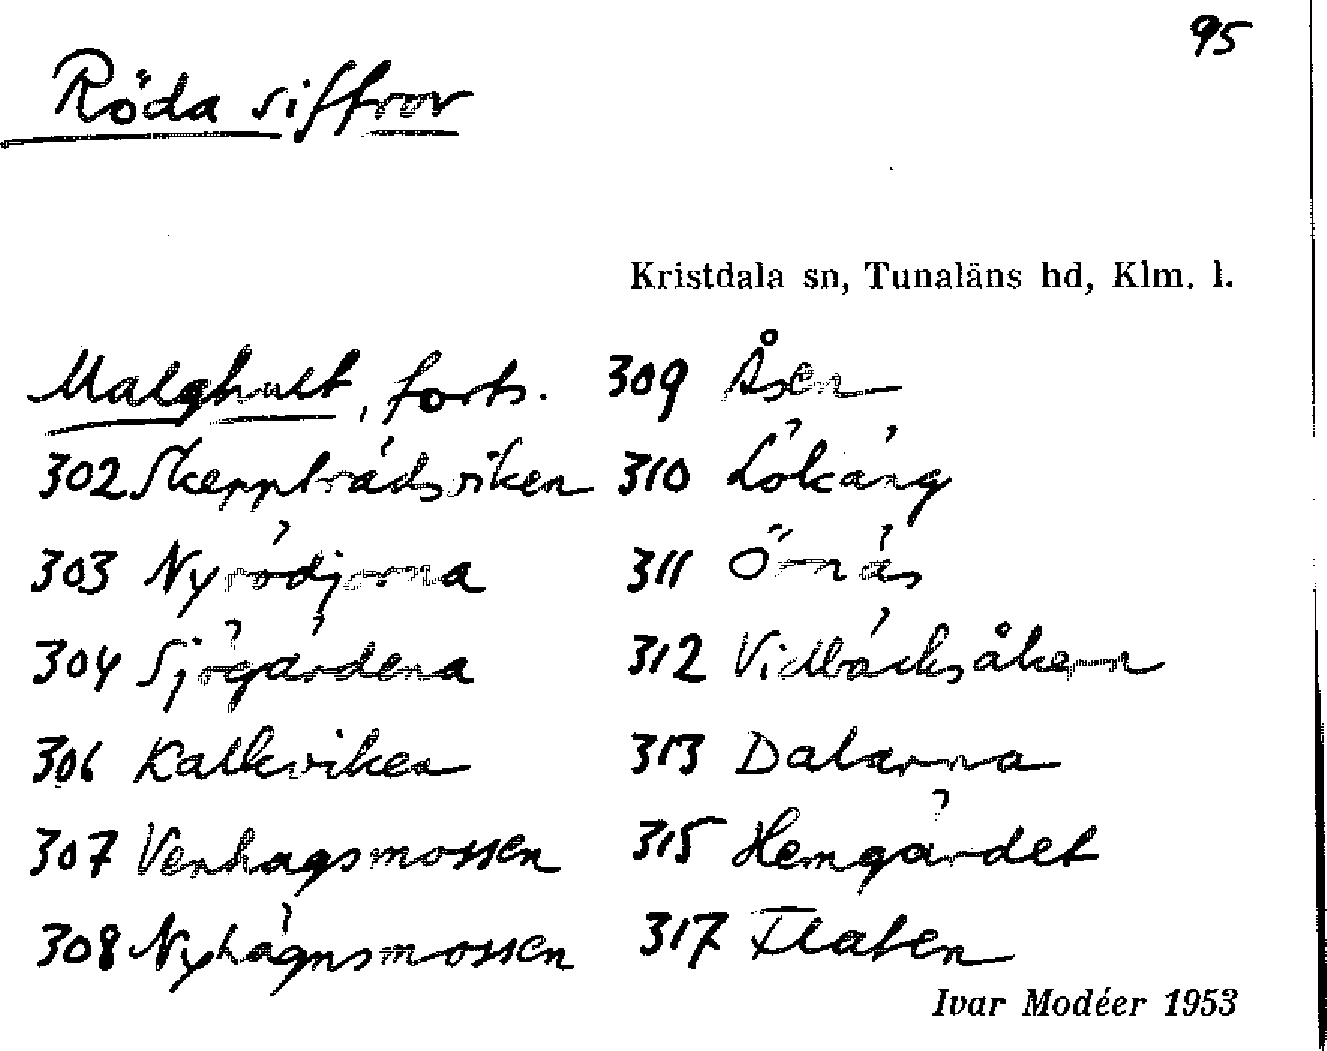 95
Röda siffror
Kristdala sn, Tunaläns hd, Klm. l.
Malghult, forts.
302 Skeppbrädsviken
303 Nyrödjorna
304 Sjögärdena
306 Kalkviken
307 Venhagsmossen
308 Nyhägnsmossen
309 Åsen
310 Lökäng
311 Örnäs
312 Vidbäcksåkern
313 Dalarna
315 Hemgärdet
317 Flaten
Ivar Modéer 1953